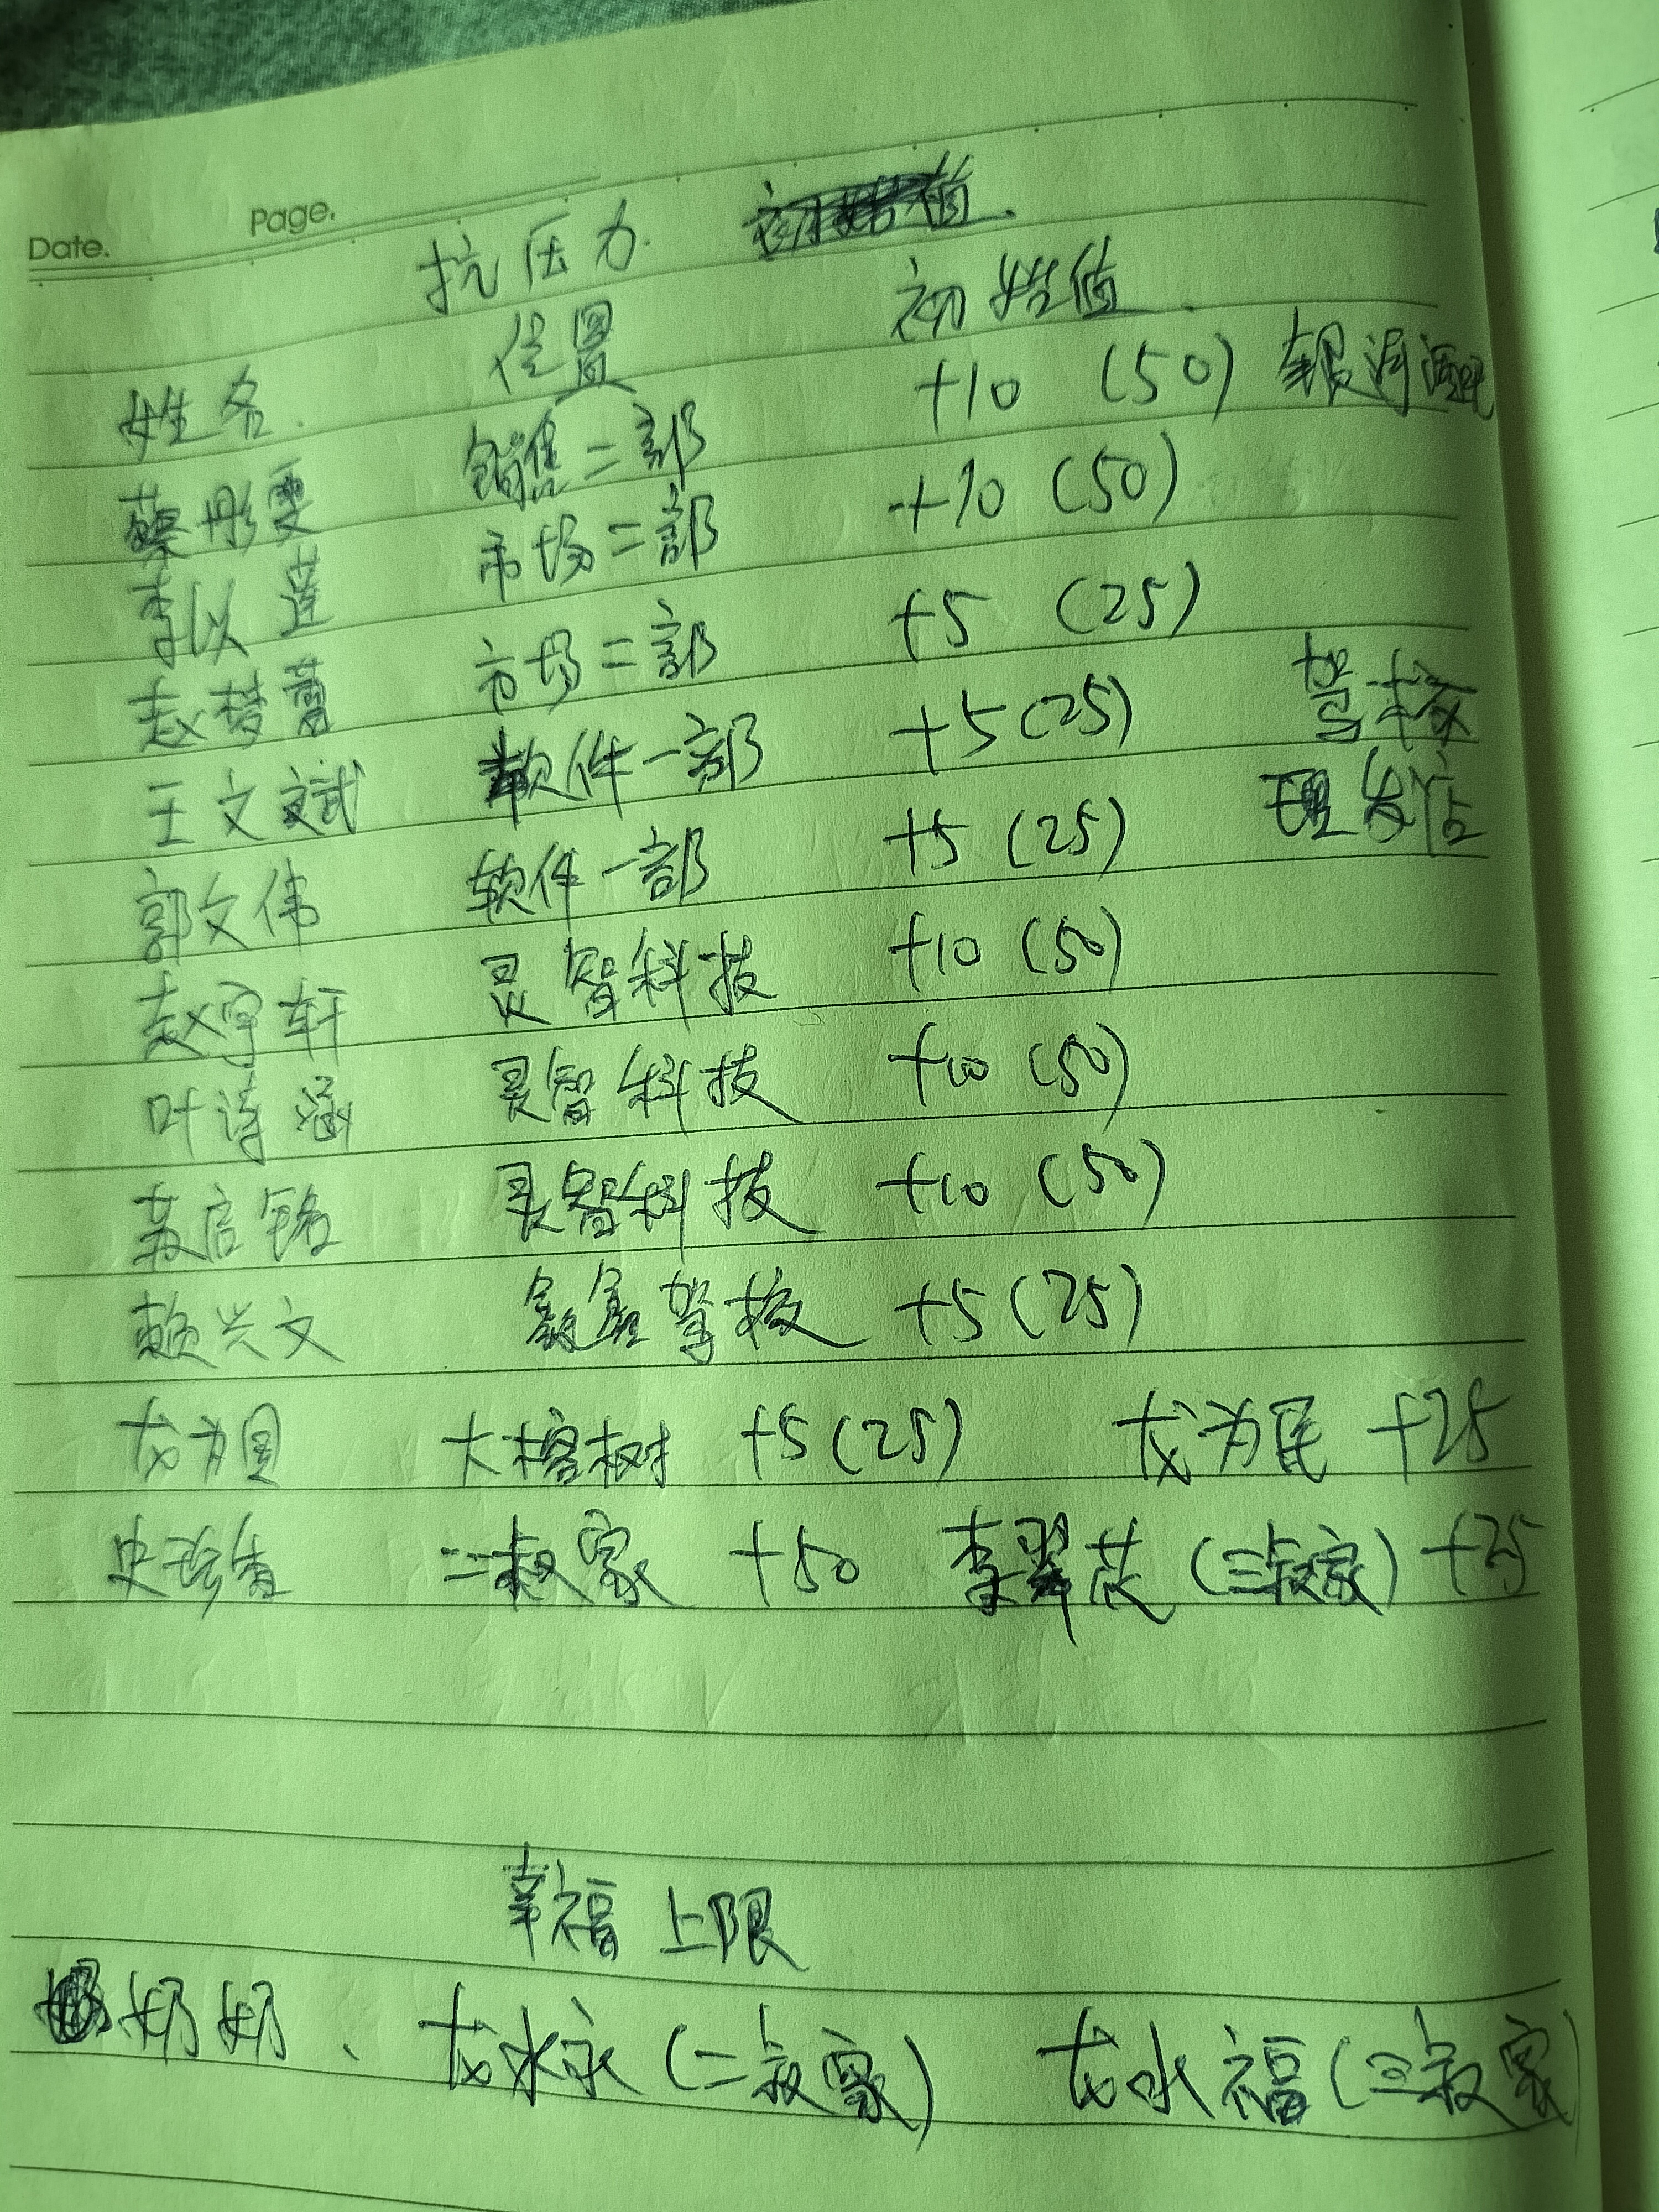 Date. Page.
抗压力.
姓名. 位置 初始值.
蔡彤雯 销售二部 +10 (50) 银河酒吧
李以莲 市场二部 +10 (50)
赵梦蕾 市场二部 +5 (25)
王文斌 软件一部 +5(25) 驾校
郭文伟 软件一部 +5 (25) 理发店
赵宇轩 灵智科技 +10 (50)
叶诗涵 灵智科技 +10 (50)
苏启铭 灵智科技 +10 (50)
赖兴文 鑫鑫驾校 +5 (25)
龙为国 大榕树 +5(25) 龙为民 +25
史珍香 二叔家 +50 李翠花 (三叔家) +25
幸福上限
奶奶、 龙水永 (二叔家) 龙水福 (三叔家)